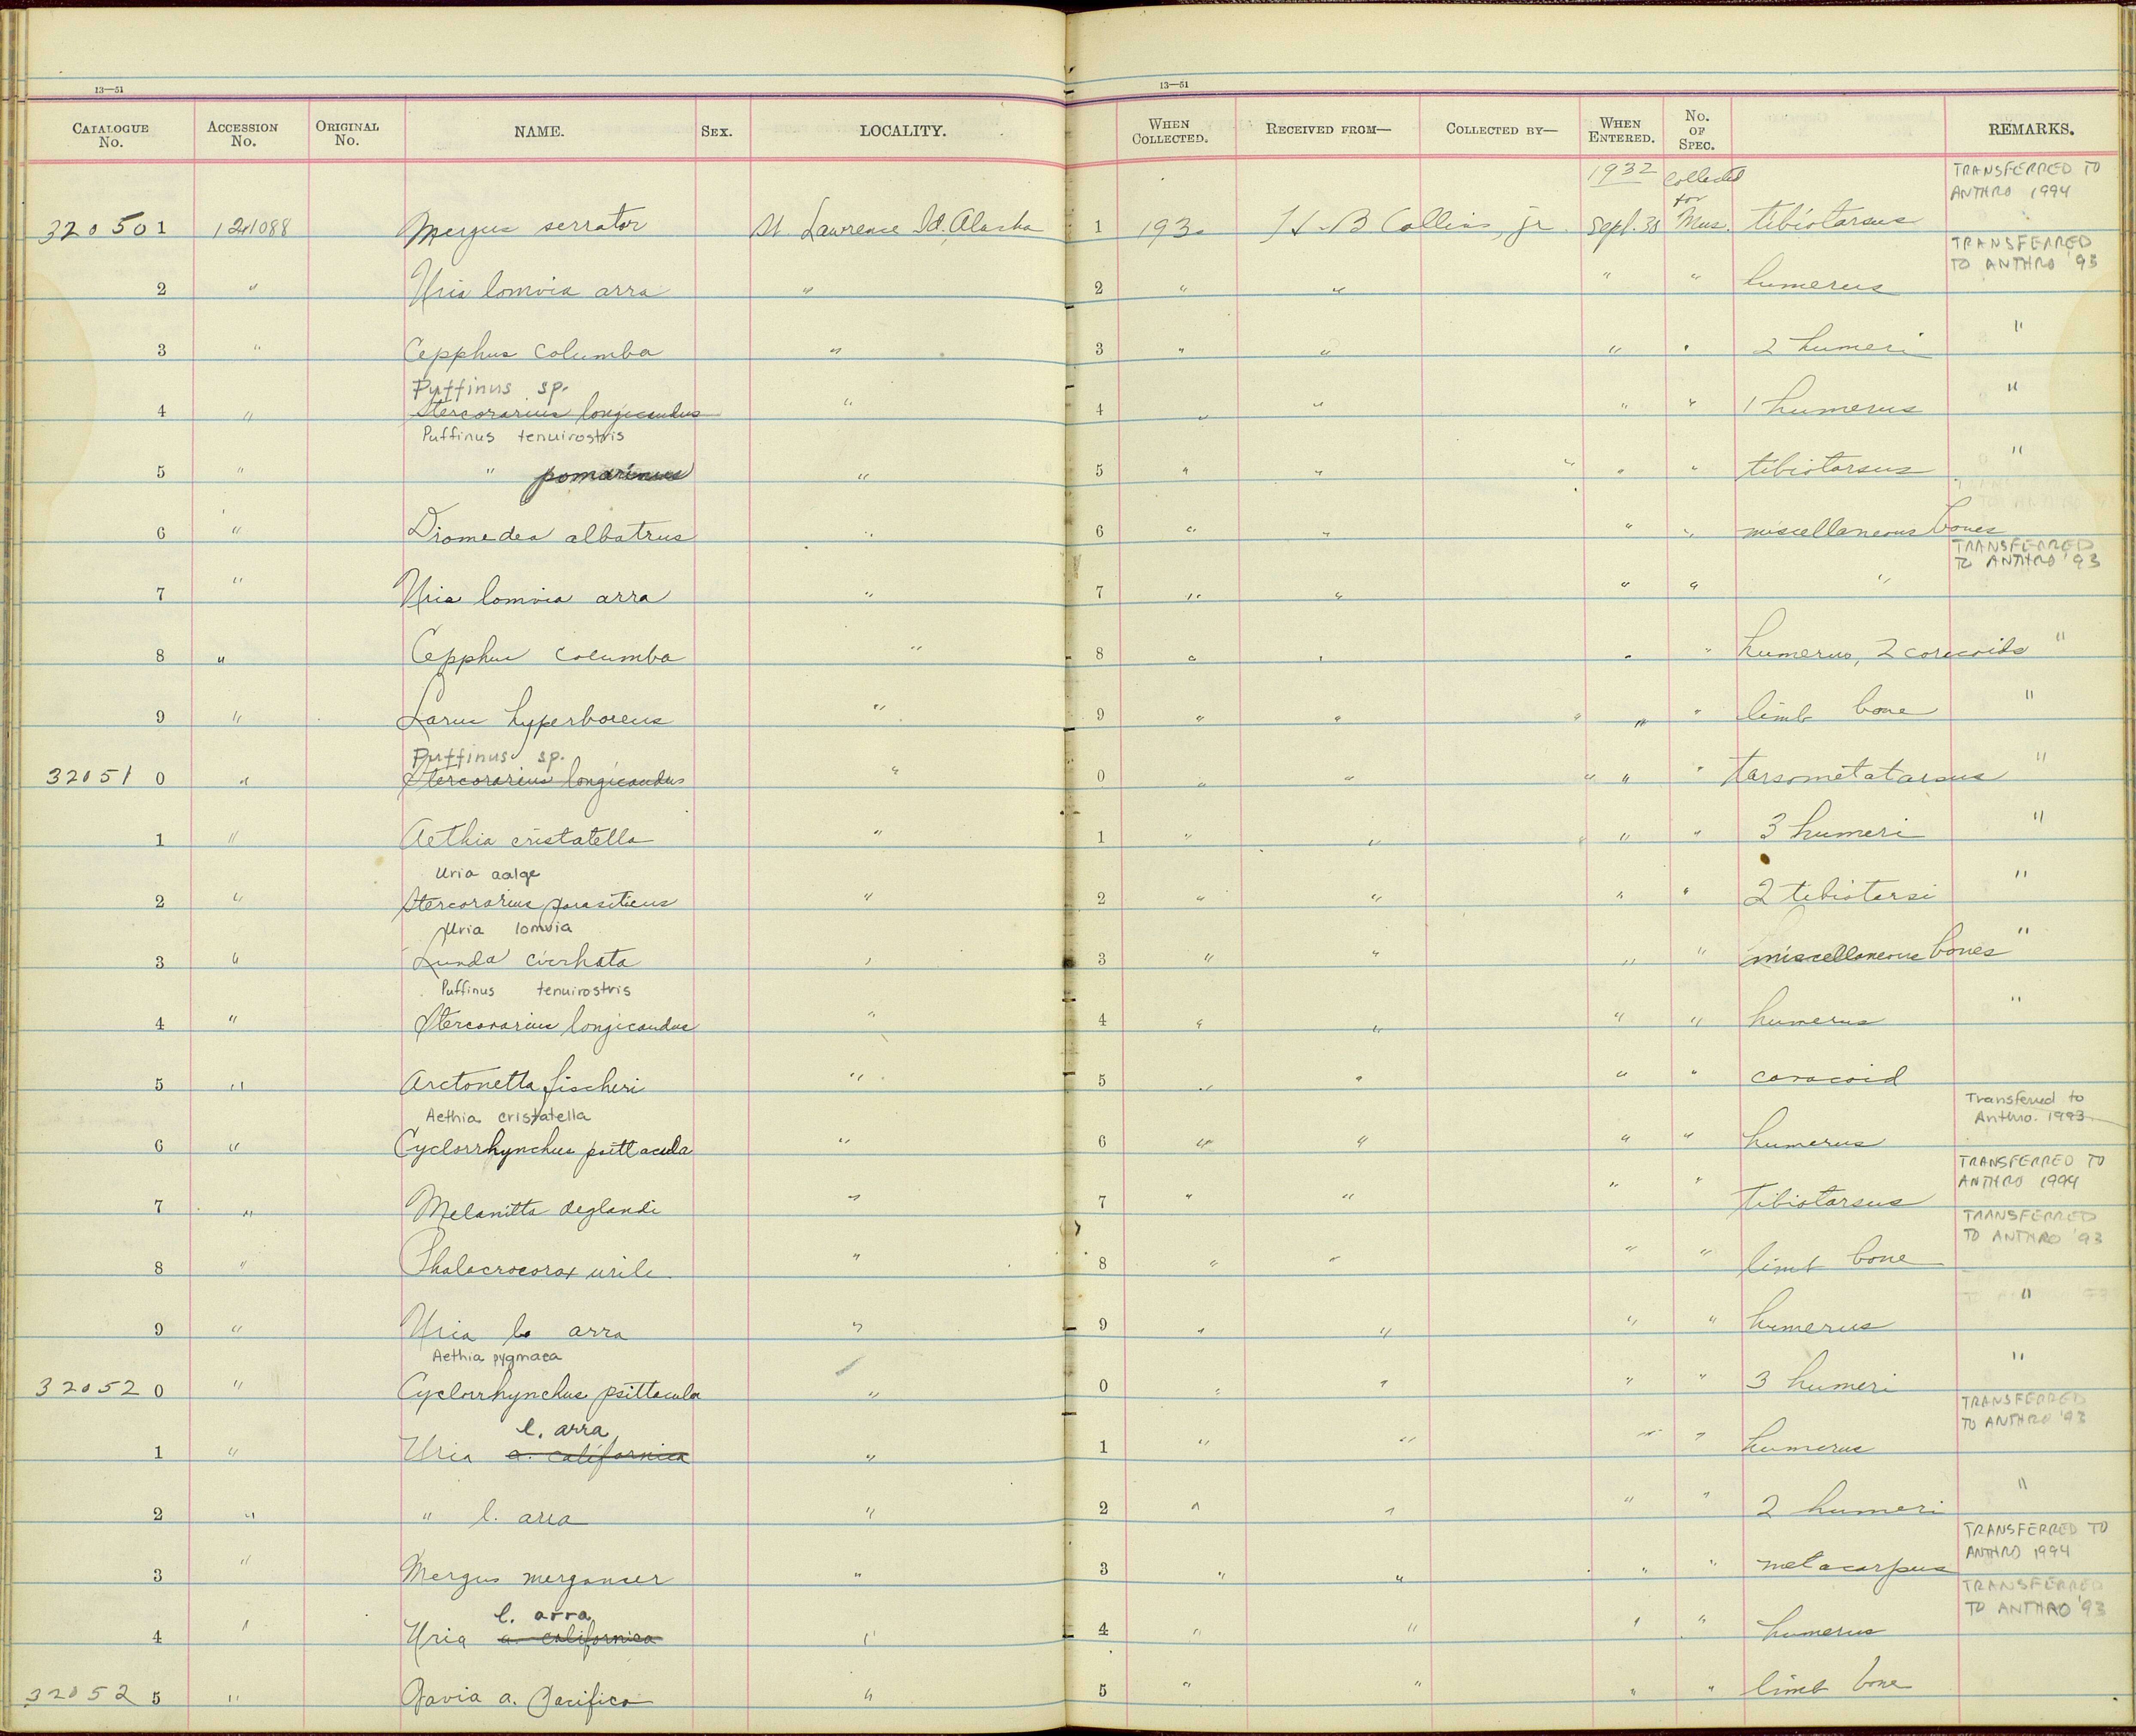 13—51 13—51
CATALOGUE No. ACCESSION No. ORIGINAL No. NAME. SEX. LOCALITY. WHEN COLLECTED. RECEIVED FROM— COLLECTED BY— WHEN ENTERED. No. OF SPEC. REMARKS.
1932 Collected for TRANSFERRED TO ANTHRO 1994
320501 121088 Mergus serrator St. Lawrence Id. Alaska 1 193 H. B Collins, jr. Sept. 30 Mus. tibiotarsus
TRANSFERRED TO ANTHRO '93
2 " Uria lomvia arra " 2 " " " " humerus
3 " Cepphus columba " 3 " " " " 2 humeri "
Puffinus sp.
4 " Stercorarius longicaudus " 4 " " " " 1 humerus "
Puffinus tenuirostris
5 " " pomarinus " 5 " " " " tibiotarsus "
6 " Diomedea albatrus " 6 " " " " miscellaneous bones
TRANSFERRED TO ANTHRO '93
7 " Uria lomvia arra " 7 " " " " "
8 " Cepphus columba " 8 " " " " humerus, 2 coracoids "
9 " Larus hyperboreus " 9 " " " " limb bone "
Puffinus sp.
320510 " Stercorarius longicaudus " 0 " " " " tarsometatarsus "
1 " Aethia cristatella " 1 " " " " 3 humeri "
Uria aalge
2 " Stercorarius parasiticus " 2 " " " " 2 tibiotarsi "
Uria lomvia
3 " Lunda cirrhata " 3 " " " " miscellaneous bones "
Puffinus tenuirostris
4 " Stercorarius longicaudus " 4 " " " " humerus "
5 " Arctonetta fischeri " 5 " " " " coracoid
Aethia cristatella Transferred to Anthro. 1993
6 " Cyclorrhynchus psittacula " 6 " " " " humerus
TRANSFERRED TO ANTHRO 1994
7 " Melanitta deglandi " 7 " " " " tibiotarsus
TRANSFERRED TO ANTHRO '93
8 " Phalacrocorax urile " 8 " " " " limb bone
9 " Uria lo arra " 9 " " " " humerus "
Aethia pygmaea
320520 " Cyclorrhynchus psittacula " 0 " " " " 3 humeri "
l. arra TRANSFERRED TO ANTHRO '93
1 " Uria a. californica " 1 " " " " humerus
2 " " l. arra " 2 " " " " 2 humeri "
TRANSFERRED TO ANTHRO 1994
3 " Mergus merganser " 3 " " " " metacarpus
l. arra TRANSFERRED TO ANTHRO '93
4 " Uria a. californica " 4 " " " " humerus
320525 " Gavia a. pacifica " 5 " " " " limb bone